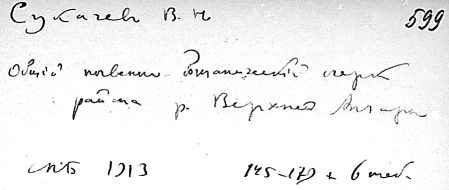 Сукачев В. Н 599
Общий почвенно ботанический очерк
района р. Верхней Ангары
СПБ 1913 145-179 + 6 таб.